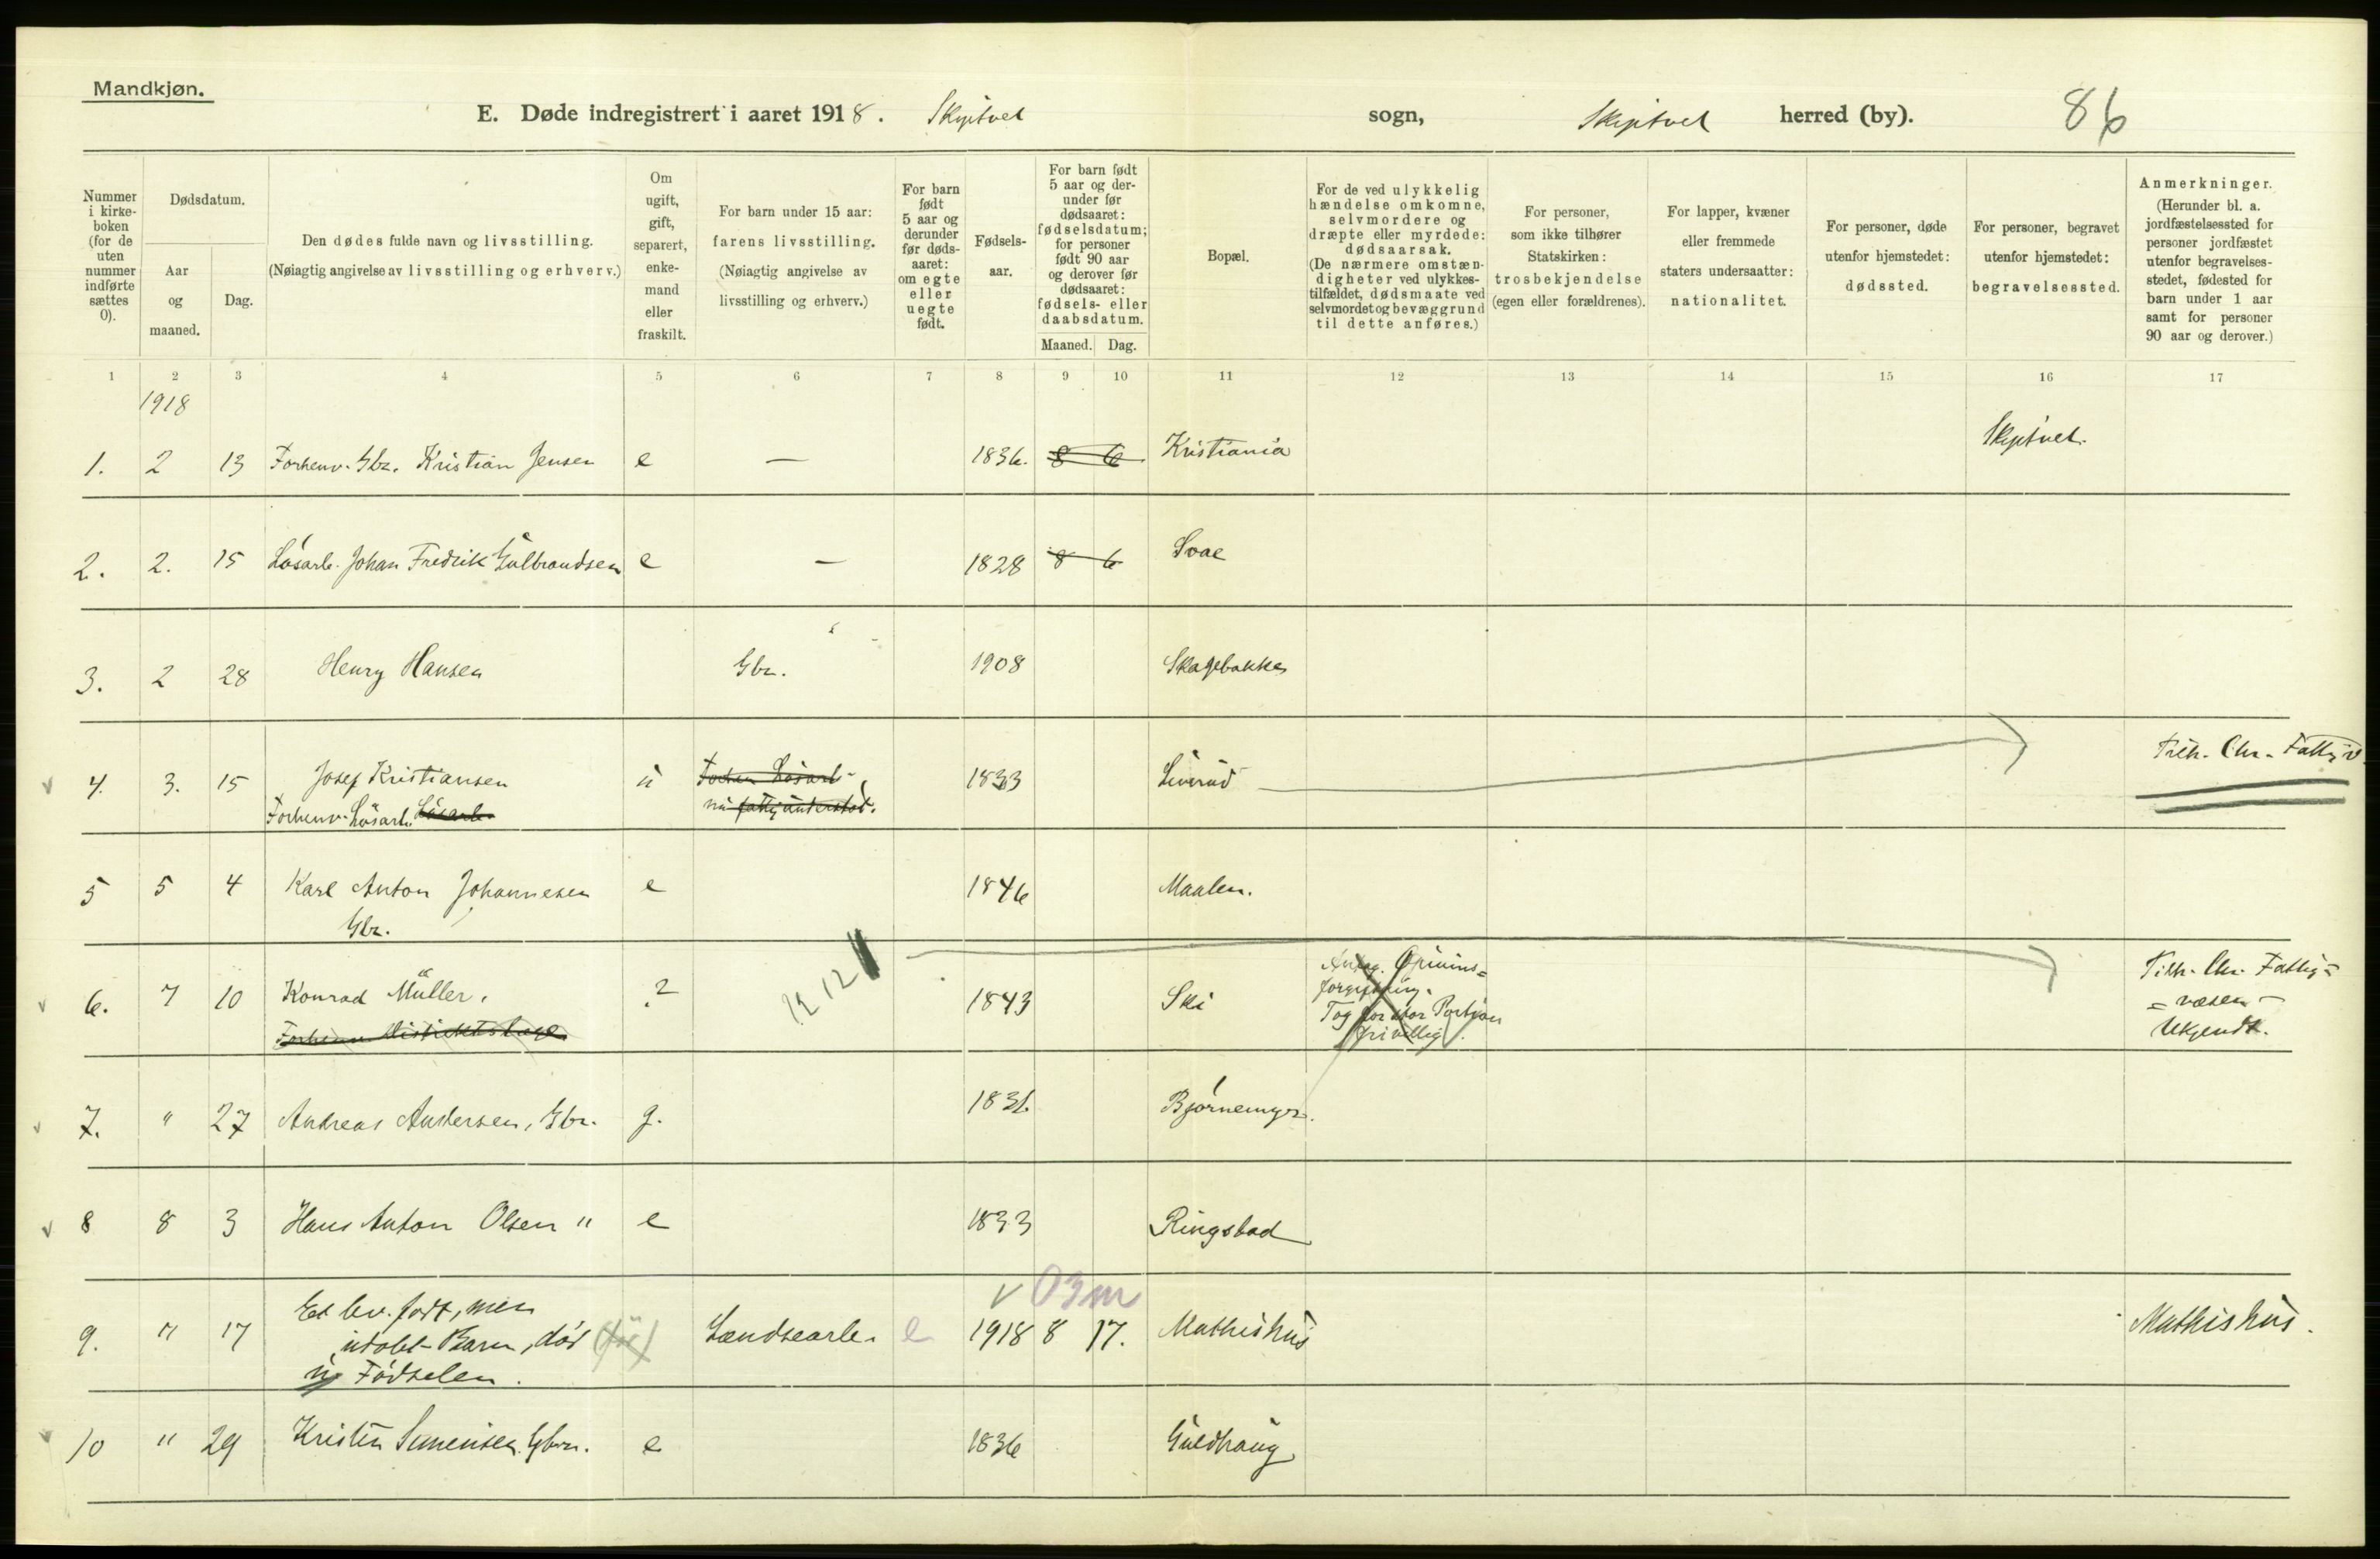 Mandkjøn.
E. Døde indregistrert i aaret 1918. Skiptvet sogn, Skiptvet herred (by). 86
Nummer i kirke-boken (for de uten nummer indførte sættes 0).
Dødsdatum.
Aar og maaned.
Dag.
Den dødes fulde navn og livsstilling.
(Nøiagtig angivelse av livsstilling og erhverv.)
Om ugift, gift, separert, enke-mand eller fraskilt.
For barn under 15 aar: farens livsstilling.
(Nøiagtig angivelse av livsstilling og erhverv.)
For barn født 5 aar og derunder før døds-aaret: om egte eller uegte født.
Fødsels-aar.
For barn født 5 aar og der-under før dødsaaret: fødselsdatum; for personer født 90 aar og derover før dødsaaret: fødsels- eller daabsdatum.
Maaned. Dag.
Bopæl.
For de ved ulykkelig hændelse omkomne, selvmordere og dræpte eller myrdede: dødsaarsak.
(De nærmere omstæn-digheter ved ulykkes-tilfældet, dødsmaate ved selvmordet og bevæggrund til dette anføres.)
For personer, som ikke tilhører Statskirken: trosbekjendelse (egen eller forældrenes).
For lapper, kvæner eller fremmede staters undersaatter: nationalitet.
For personer, døde utenfor hjemstedet: dødssted.
For personer, begravet utenfor hjemstedet: begravelsessted.
Anmerkninger.
(Herunder bl. a. jordfæstelsessted for personer jordfæstet utenfor begravelses-stedet, fødested for barn under 1 aar samt for personer 90 aar og derover.)
1 2 3 4 5 6 7 8 9 10 11 12 13 14 15 16 17
1918
1. 2 13 Forhenv. Gbr. Kristian Jensen e — 1836. 8 6 Kristiania Skiptvet.
2. 2. 15 Løsarb. Johan Fredrik Gulbrandsen e — 1828 8 6 Svae
3. 2 28 Henry Hansen Gbr. 1908 Skagebakke
4. 3. 15 Josef Kristiansen u Forhen Løsarb. 1833 Liverud Tilh. Chr. Fattigv.
Forhenv. Løsarb. Løsarb. nu fattigunderstøt.
5 5 4 Karl Anton Johannesen e 1846 Maalen.
Gbr.
6. 7 10 Konrad Müller. ? 12 12 1843 Ski Antag. Opiums=forgiftning. Tilh. Chr. Fattig=
Forhenv. Distriktslæge Tog for stor Portion frivillig. =væsen-
Ukjendt.
7. " 27 Andreas Andersen, Gbr. g. 1836 Bjørnemyr.
8 8 3 Hans Anton Olsen " e 1833 Ringstad
03m
9. " 17 Et lev. født, men
udøbt Barn, død Landsearb. e 1918 8 17. Mathishus Mathishus.
u/ Fødselen.
10 " 29 Kristen Simensen Gbr. e 1836 Guldhaug